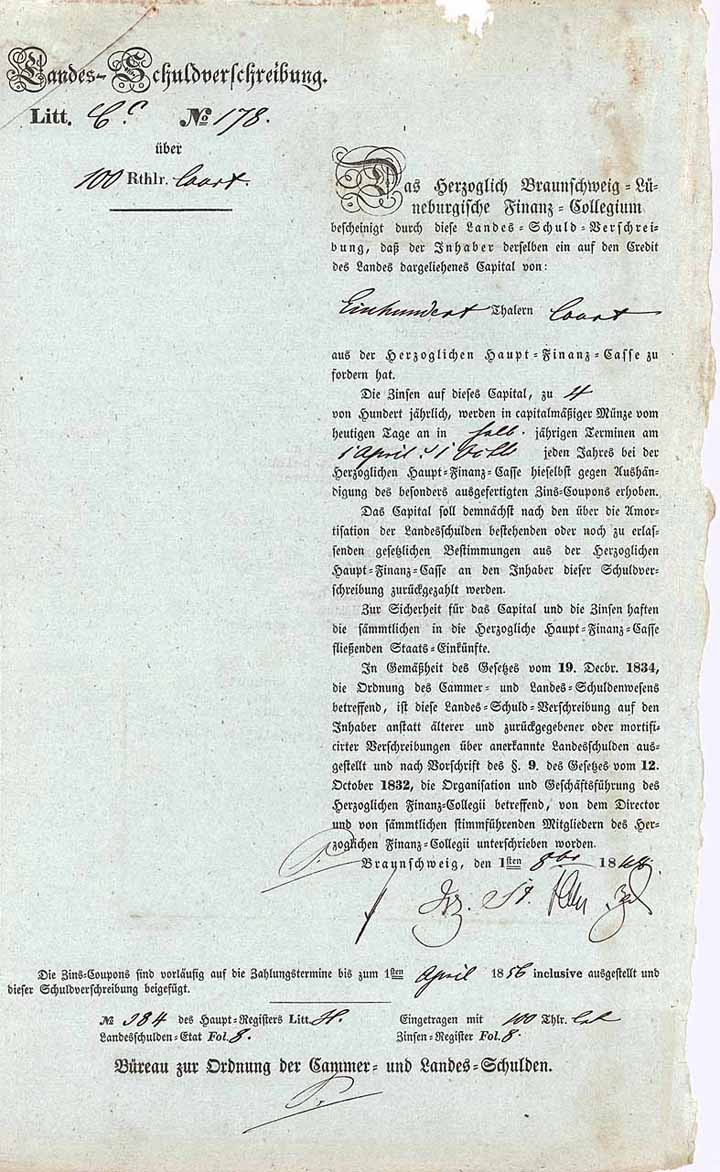 Landes-Schuldverschreibung.
Litt. C^c № 178.
über
100 Rthlr. Court.
Das Herzoglich Braunschweig-Lü-
neburgische Finanz-Collegium
bescheinigt durch diese Landes-Schuld-Verschrei-
bung, daß der Inhaber derselben ein auf den Credit
des Landes dargeliehenes Capital von:
Einhundert Thalern Court
aus der Herzoglichen Haupt-Finanz-Casse zu
fordern hat.
Die Zinsen auf dieses Capital, zu 4
von Hundert jährlich, werden in capitalmäßiger Münze vom
heutigen Tage an in halb jährigen Terminen am
1 April 1 Octb jeden Jahres bei der
Herzoglichen Haupt-Finanz-Casse hieselbst gegen Aushän-
digung des besonders ausgefertigten Zins-Coupons erhoben.
Das Capital soll demnächst nach den über die Amor-
tisation der Landesschulden bestehenden oder noch zu erlas-
senden gesetzlichen Bestimmungen aus der Herzoglichen
Haupt-Finanz-Casse an den Inhaber dieser Schuldver-
schreibung zurückgezahlt werden.
Zur Sicherheit für das Capital und die Zinsen haften
die sämmtlichen in die Herzogliche Haupt-Finanz-Casse
fließenden Staats-Einkünfte.
In Gemäßheit des Gesetzes vom 19. Decbr. 1834,
die Ordnung des Cammer- und Landes-Schuldenwesens
betreffend, ist diese Landes-Schuld-Verschreibung auf den
Inhaber anstatt älterer und zurückgegebener oder mortifi-
cirter Verschreibungen über anerkannte Landesschulden aus-
gestellt und nach Vorschrift des §. 9. des Gesetzes vom 12.
October 1832, die Organisation und Geschäftsführung des
Herzoglichen Finanz-Collegii betreffend, von dem Director
und von sämmtlichen stimmführenden Mitgliedern des Her-
zoglichen Finanz-Collegii unterschrieben worden.
Braunschweig, den 1sten 8br 18
Die Zins-Coupons sind vorläufig auf die Zahlungstermine bis zum 1sten April 1856 inclusive ausgestellt und
dieser Schuldverschreibung beigefügt.
№ 384 des Haupt-Registers Litt. H. Eingetragen mit 100 Thlr. Crt
Landesschulden-Etat Fol. 8. Zinsen-Register Fol. 8.
Büreau zur Ordnung der Cammer- und Landes-Schulden.